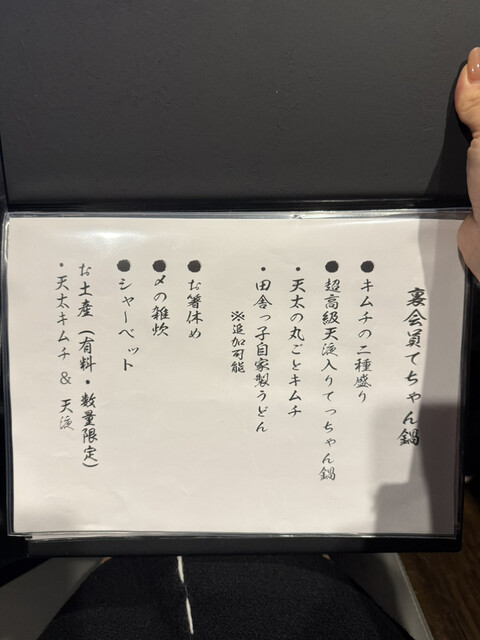 裏会員てちゃん鍋
●キムチの二種盛り
●超高級天液入りてっちゃん鍋
・天太の丸ごとキムチ
・田舎っ子自家製うどん
※追加可能
●お箸休め
●〆の雑炊
●シャーベット
お土産(有料・数量限定)
・天太キムチ & 天液